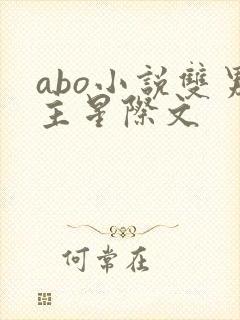 abo小説雙男
主星際文
何常在